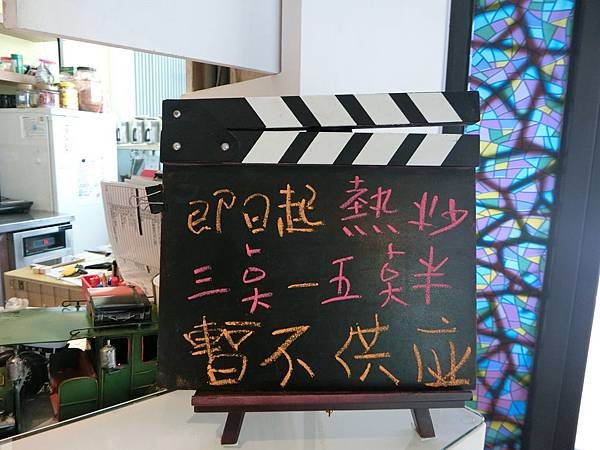 即日起 熱炒
三点一五点半
暫不供应